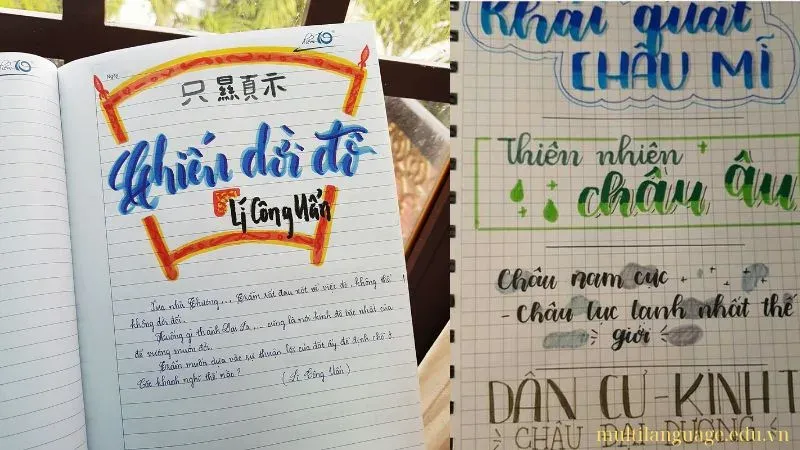 Ngày
只顯頁示
Chiếu dời đô
Lí Công Uẩn
Xưa nhà Thương... Trẫm rất đau xót về việc đó, không thể
không dời đổi.
Huống gì thành Đại La ... cũng là nơi kinh đô bậc nhất của
đế vương muôn đời.
Trẫm muốn dựa vào sự thuận lợi của đất ấy để định chỗ ở.
Các khanh nghĩ thế nào?
(Lí Công Uẩn)
Khái quát
CHÂU MĨ
Thiên nhiên
châu âu
Châu nam cực
- Châu lục lạnh nhất thế
giới
DÂN CƯ - KINH T
CHÂU ĐẠI DƯƠNG
multilanguage.edu.vn